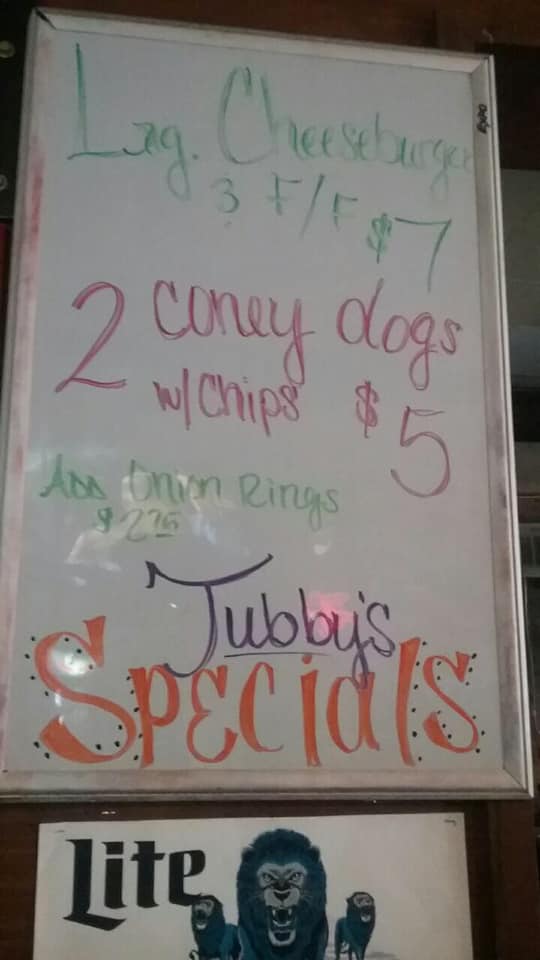 Lrg. Cheeseburger
3 F/F $7
2 Coney dogs
w/Chips $5
ADD Onion Rings
$2.75
Tubby's
Specials
EXPO
Lite